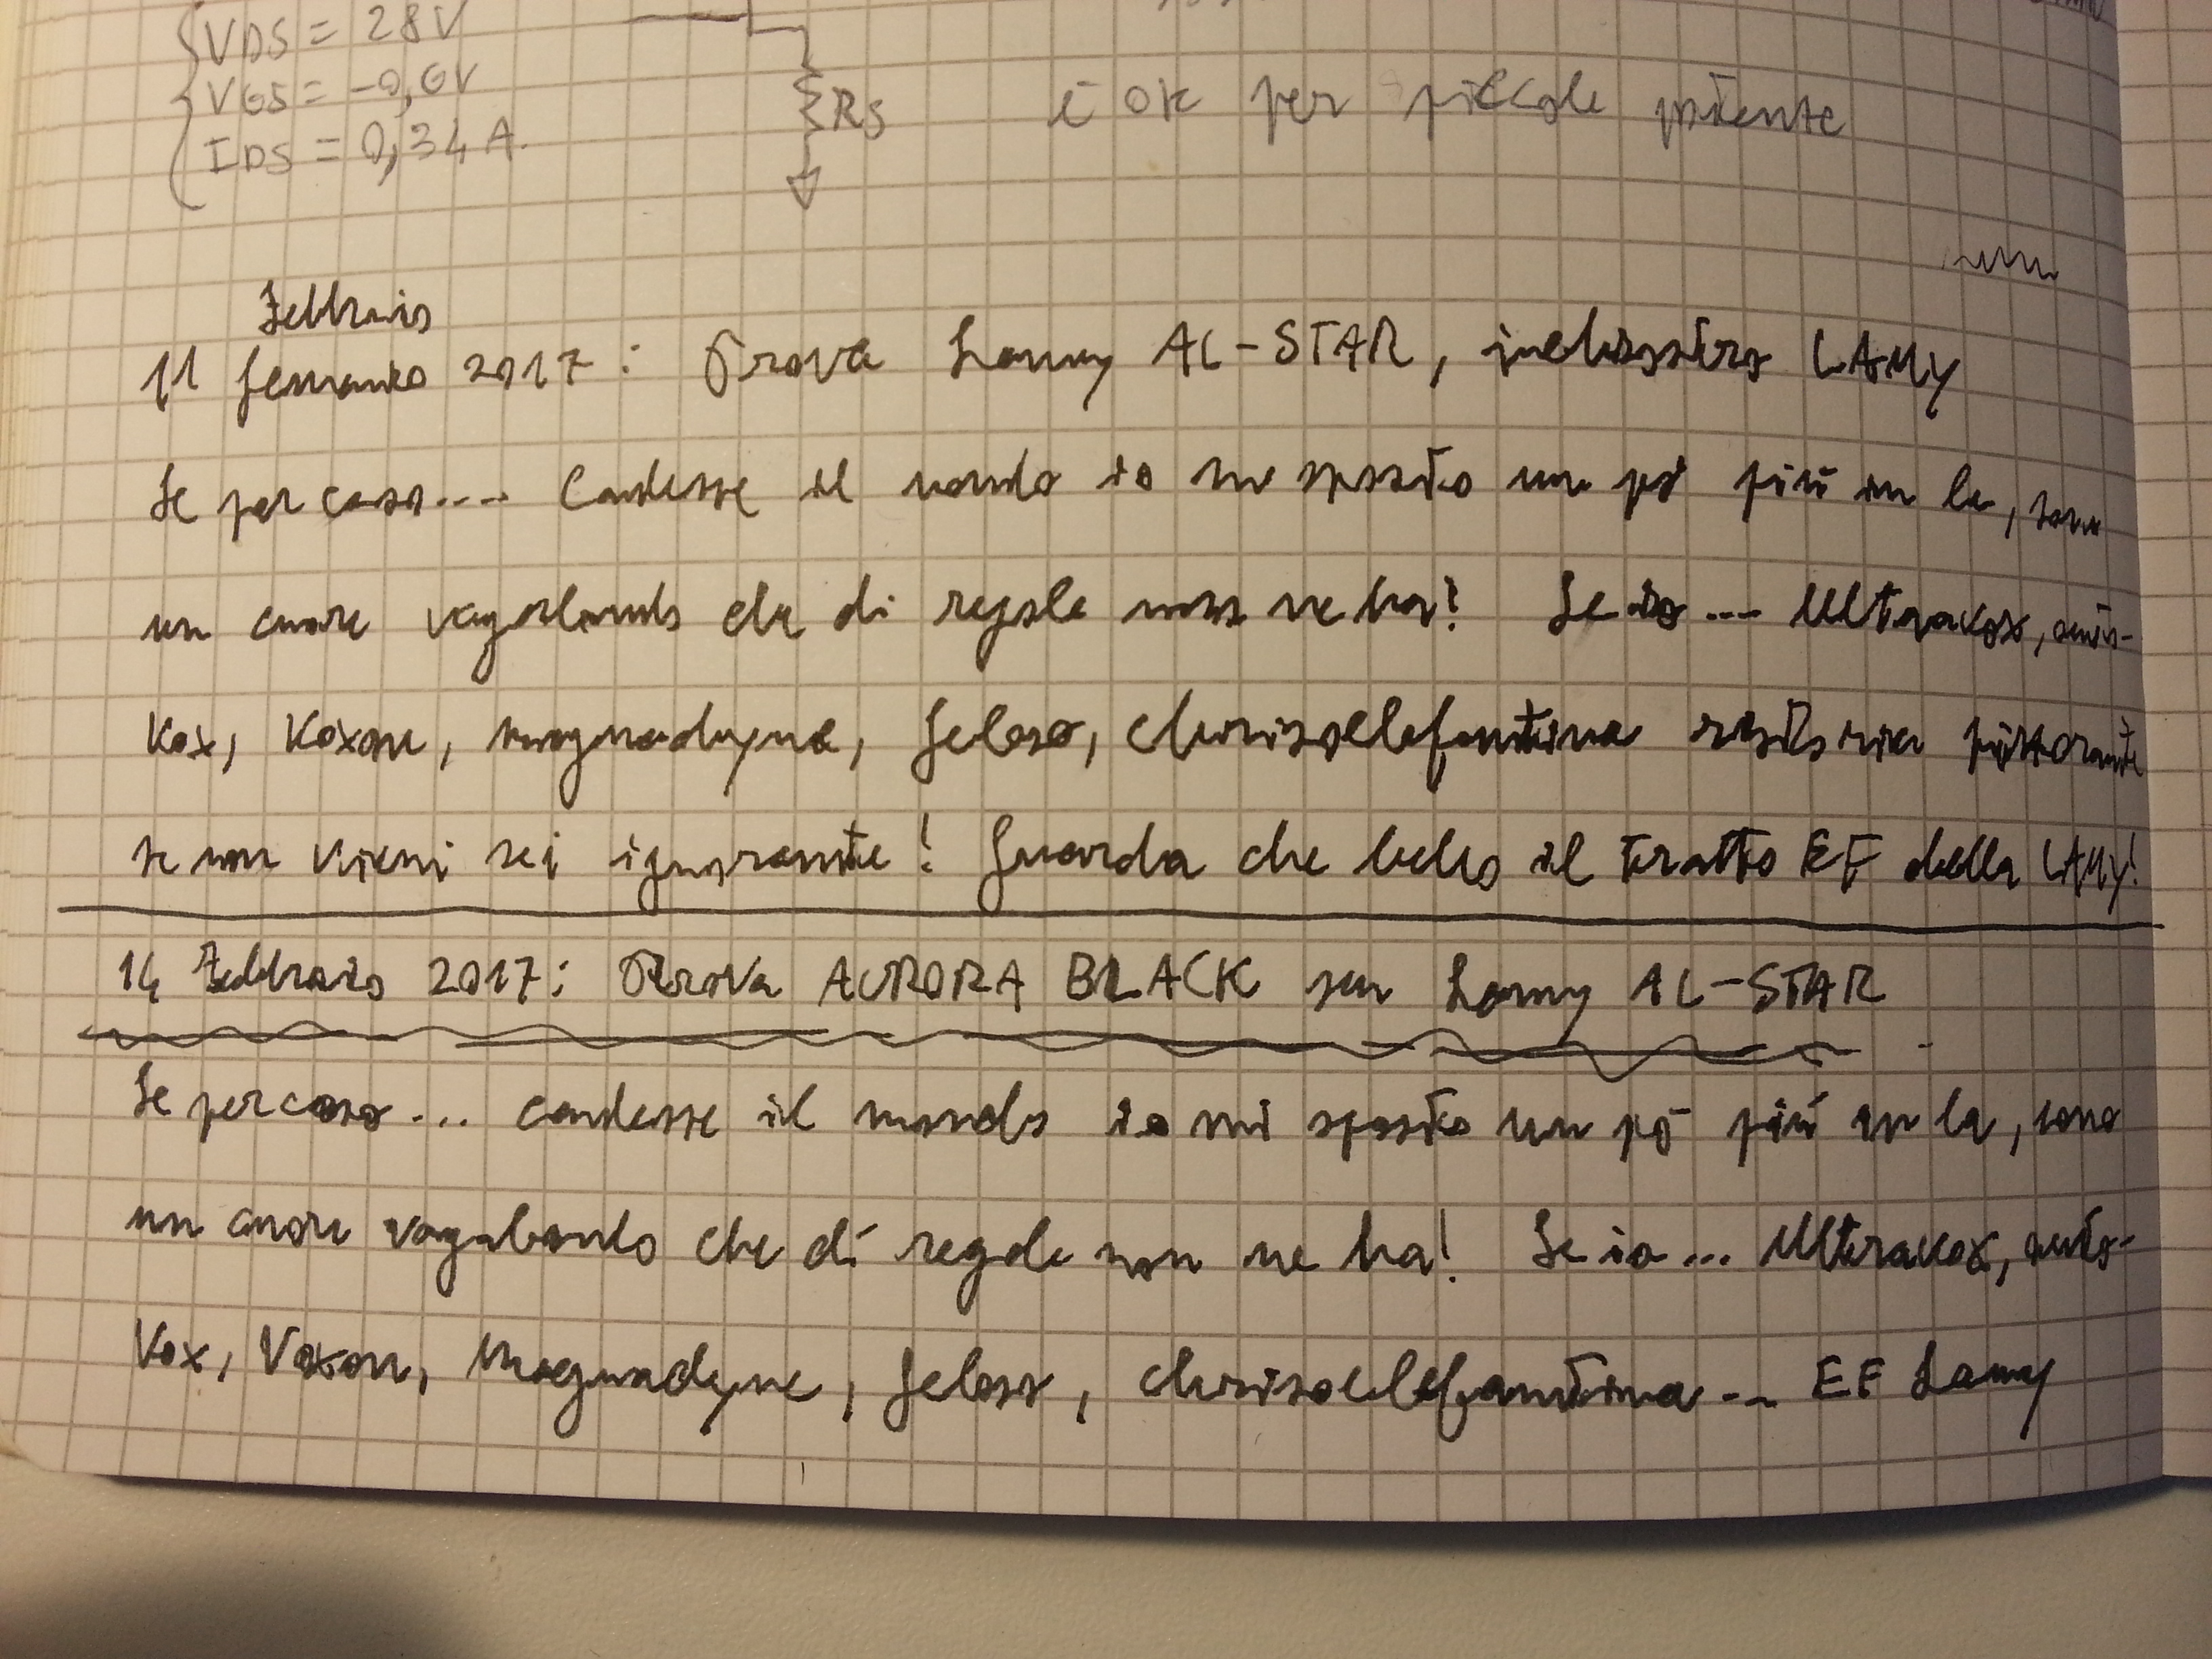 VDS = 28V
VGS = -0,6V
IDS = 0,34 A.
RS
è ok per piccole potente
Febbraio
11 gennaio 2017: Prova Lamy AL-STAR, inchiostro LAMY
Se per caso.... Cadesse il mondo io mi sposto un pò più in la, sono
un cuore vagabondo che di regole non ne ha! Se io --- Ultravox, auto-
Vox, Voxon, magnadyne, Geloso, chrisoelefantina ristorante
se non vieni sei ignorante! Guarda che bello il tratto EF della LAMY!
14 Febbraio 2017: Prova AURORA BLACK su Lamy AL-STAR
Se per caso... cadesse il mondo io mi sposto un pò più in la, sono
un cuore vagabondo che di regole non ne ha! Se io... Ultravox, auto-
Vox, Voxon, Magnadyne, Geloso, chrisoelefantina -- EF Lamy